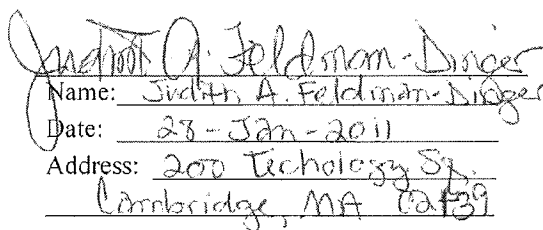 Judith A. Feldman-Dinger
Name: Judith A. Feldman-Dinger
Date: 28-Jan-2011
Address: 200 Techology Sq.
Cambridge, MA 02139